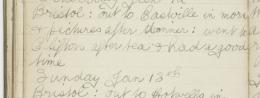 Bristol: out to Eastville in morn
& pictures after dinner: went to
Clifton after tea & had a good
time
Sunday Jan 13th
Bristol: out to Hotwells in